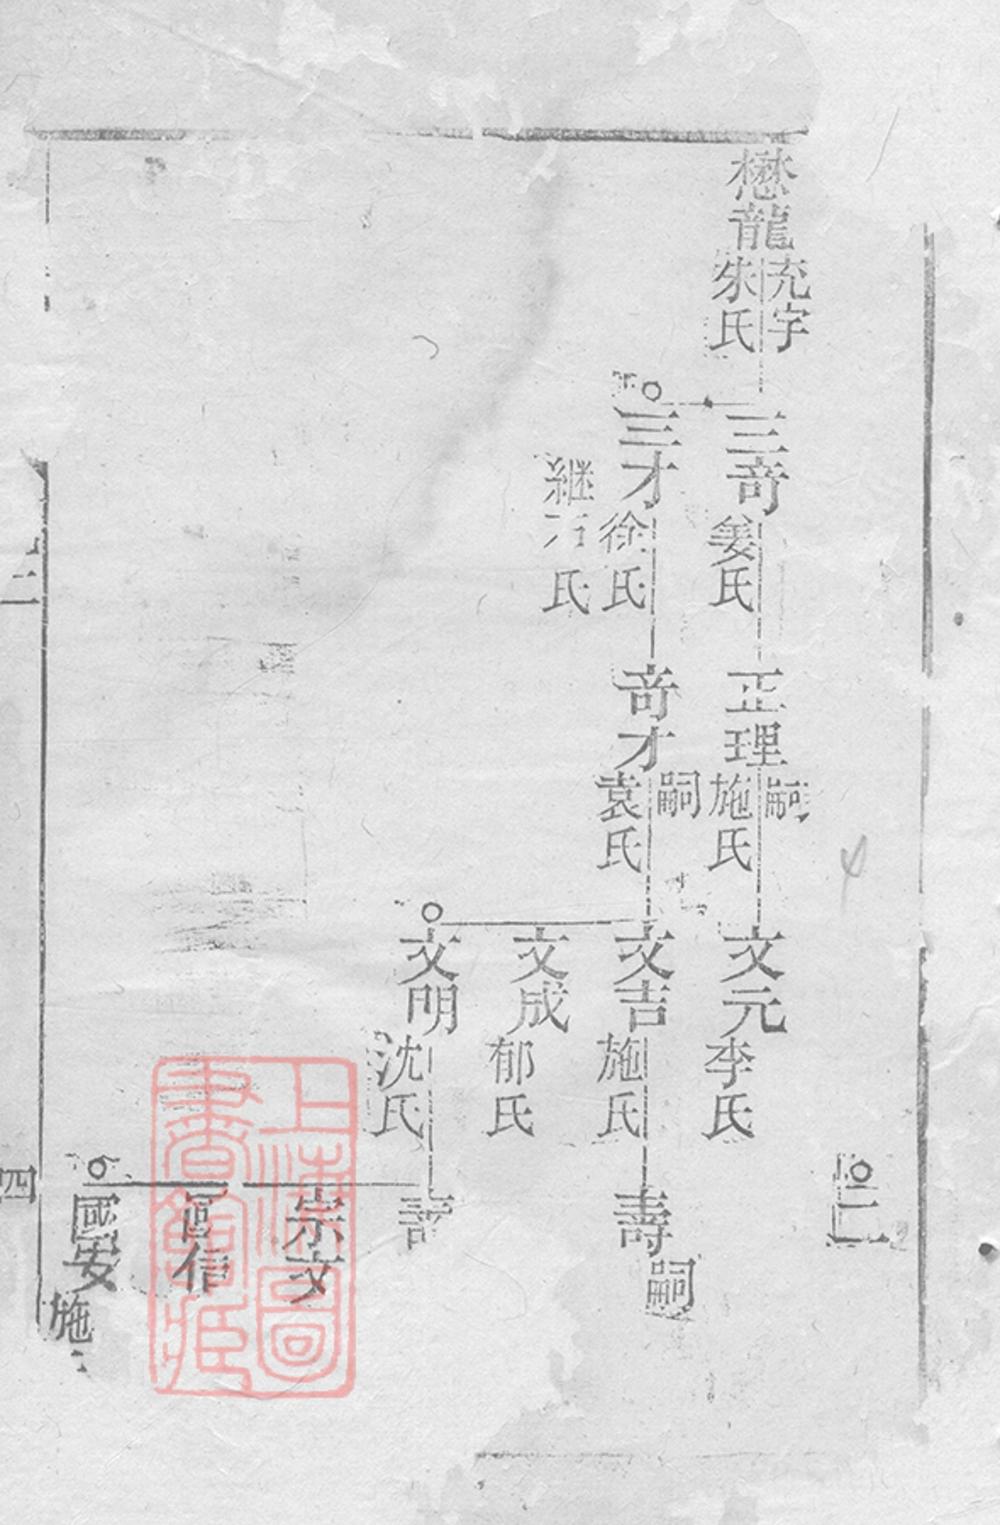 懋龍
充宇
朱氏
三奇
姜氏
三才
徐氏
継 氏
正理
嗣
施氏
奇才
嗣
袁氏
文元
李氏
文吉
施氏
文成
郁氏
文明
沈氏
二
壽
嗣
壽
宗文
信
國安
施
二
四
上海圖書館藏